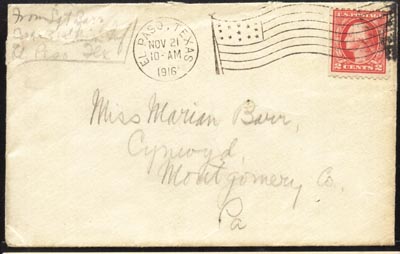 From Sgt Barr
El Paso Tex
EL PASO, TEXAS
NOV 21
10-AM
1916
U.S. POSTAGE
2 CENTS 2
Miss Marian Barr,
Cynwyd,
Montgomery Co.
Pa